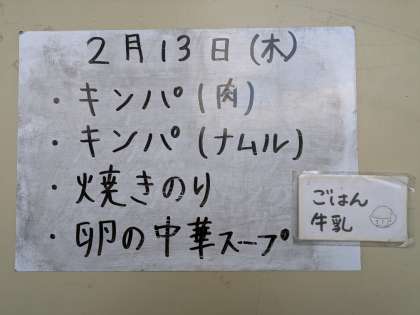 2月13日(木)
・キンパ(肉)
・キンパ(ナムル)
・焼きのり
・卵の中華スープ
ごはん
牛乳